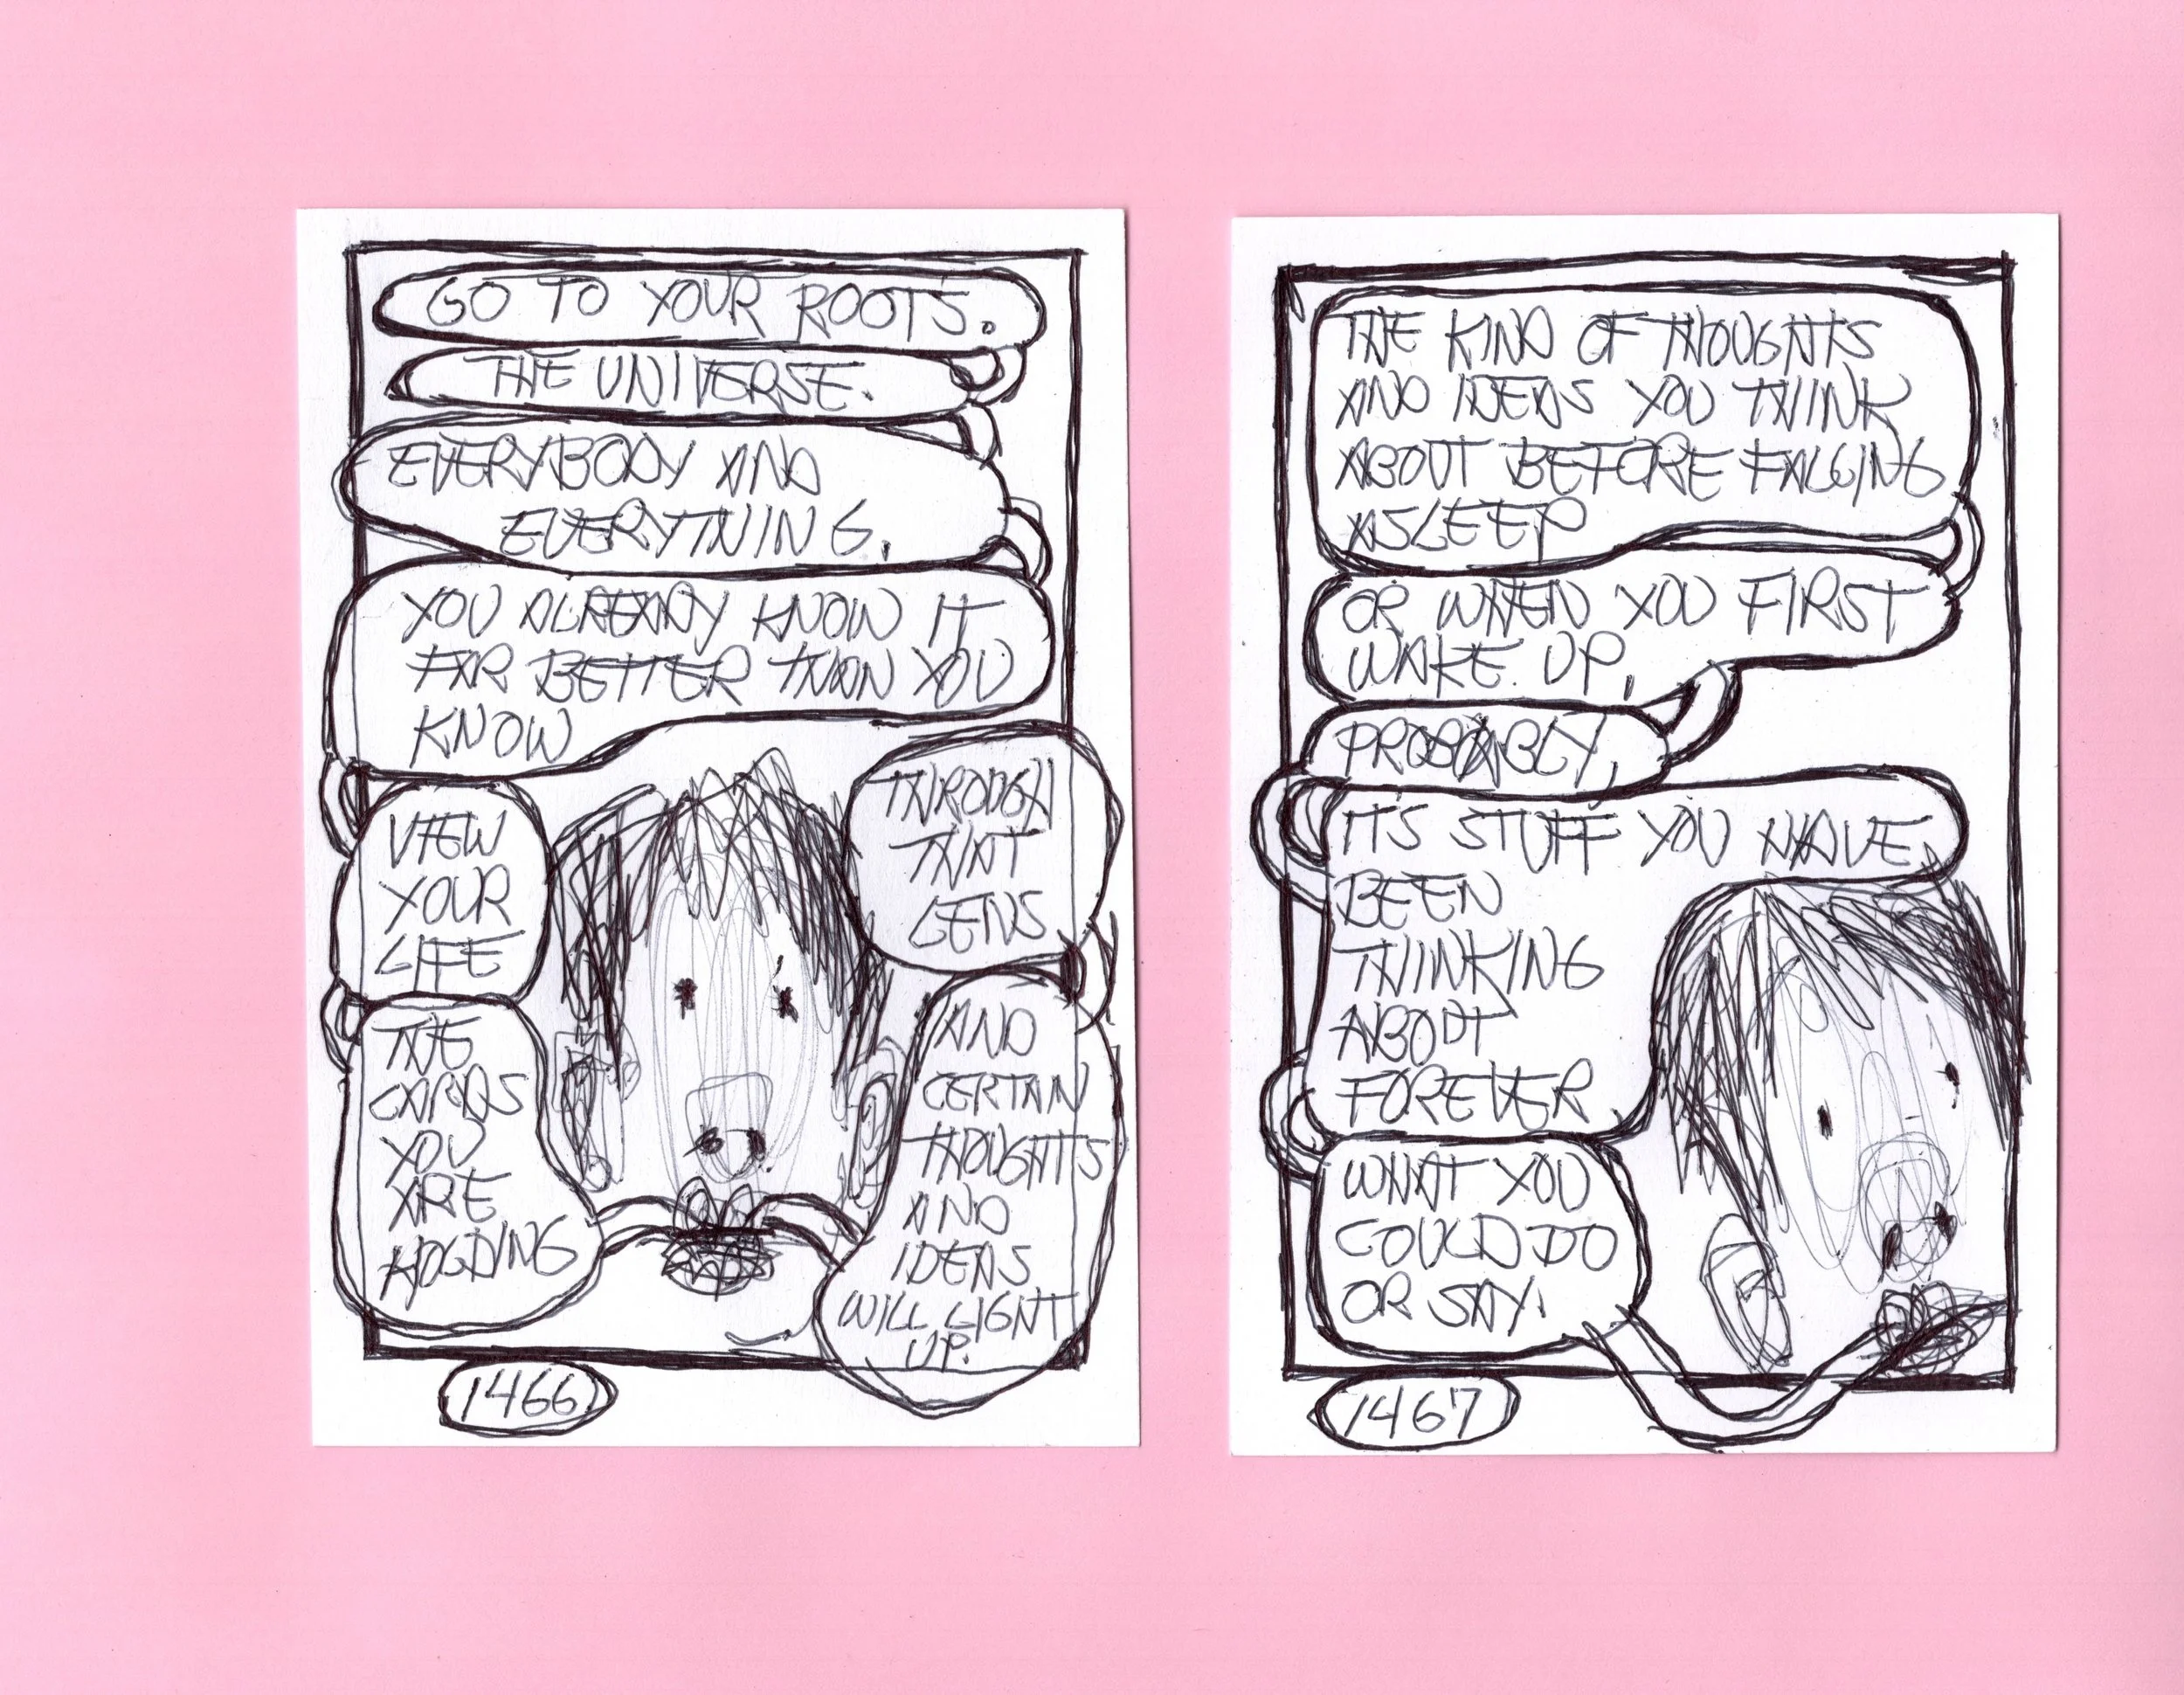 GO TO YOUR ROOTS.
THE UNIVERSE.
EVERYBODY AND
EVERYTHING.
YOU ALREADY KNOW IT
FAR BETTER THAN YOU
KNOW
VIEW
YOUR
LIFE
THE
CARDS
YOU
ARE
HOLDING
THROUGH
THAT
LENS
AND
CERTAIN
THOUGHTS
AND
IDEAS
WILL LIGHT
UP.
1466
THE KIND OF THOUGHTS
AND IDEAS YOU THINK
ABOUT BEFORE FALLING
ASLEEP
OR WHEN YOU FIRST
WAKE UP,
PROBABLY,
IT'S STUFF YOU HAVE
BEEN
THINKING
ABOUT
FOREVER
WHAT YOU
COULD DO
OR SAY.
1467